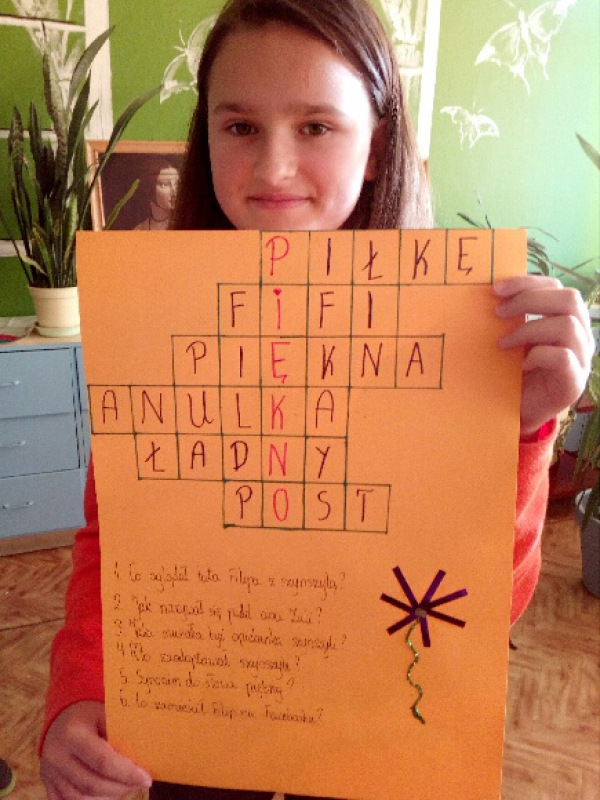 PIŁKĘ
FiFI
PIĘKNA
ANULKA
ŁADNY
POST
1. Co oglądał tata Filipa z szynszylą?
2. Jak nazywał się pudel
3. Jaka musiała być opiekunka szynszyli?
4. Kto zaadoptował szynszylę?
5. Synonim do słowa piękny?
6. Co zamieścił Filip na Facebooku?